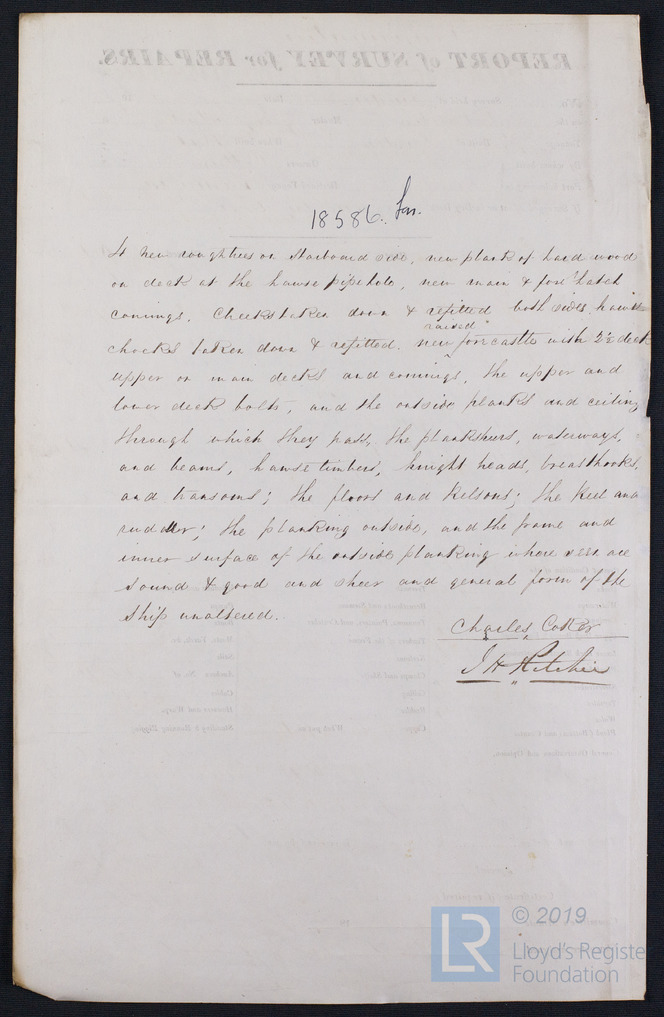 REPORT of SURVEY for REPAIRS.
18586 Lon.
4 new roughtrees on Starboard side, new plank of hard wood
on deck at the hawse pipe hole, new main & fore hatch
comings. Cheeks taken down & refitted both sides, hawse
chocks taken down & refitted. new raised forecastle with 2½ deck
upper or main decks and comings, the upper and
lower deck bolts, and the outside planks and ceiling
through which they pass, the planksheers, waterways,
and beams, hawse timbers, knight heads, breasthooks,
and transoms; the floors and kelsons; the keel and
rudder; the planking outside, and the frame and
inner surface of the outside planking where seen are
sound & good and sheer and general form of the
ship unaltered.
Charles Coker
J H Ritchie
© 2019
LR
Lloyd's Registe
Foundation